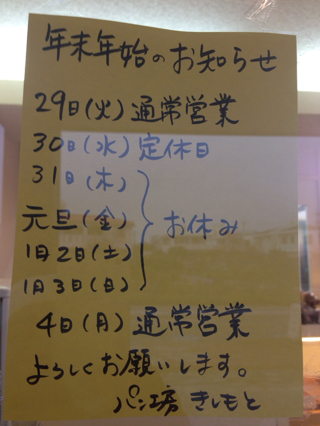 年末年始のお知らせ
29日(火)通常営業
30日(水)定休日
31日(木)
元旦(金)
お休み
1月2日(土)
1月3日(日)
4日(月)通常営業
よろしくお願いします。
パン工房 きしもと